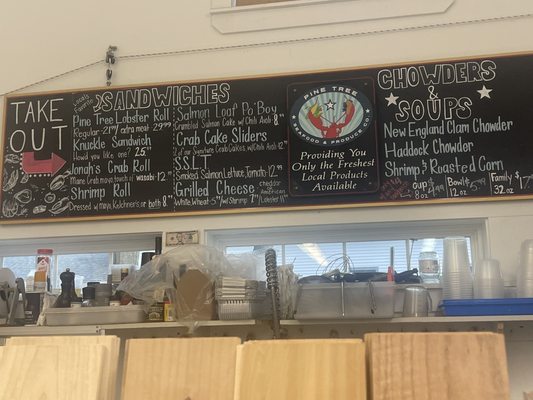 TAKE
OUT
Locals
Favorite
SANDWICHES
Pine Tree Lobster Roll
Regular 21.99 extra meat 29.99
Knuckle Sandwich
How'd you like one? 25.99
Jonah's Crab Roll
Maine Crab w/ touch of wasabi 12.99
Shrimp Roll
Dressed w/ mayo, Kelchner's or both 8.
Salmon Loaf Po' Boy
Crumbled Salmon Cake w/ Chili Aioli 12.99
Crab Cake Sliders
2 of our Signature Crab Cakes w/ Chili Aioli 12.99
S.S.L.T.
Smoked Salmon, Lettuce, Tomato 12.
Grilled Cheese
cheddar or
American
White, Wheat 5.00 w/ Shrimp 7. w/ Lobster 11.
PINE TREE
SEAFOOD & PRODUCE CO.
Providing You
Only the Freshest
Local Products
Available
CHOWDERS
&
SOUPS
New England Clam Chowder
Haddock Chowder
Shrimp & Roasted Corn
cup
8 oz.
Bowl
12 oz.
Family
32 oz.